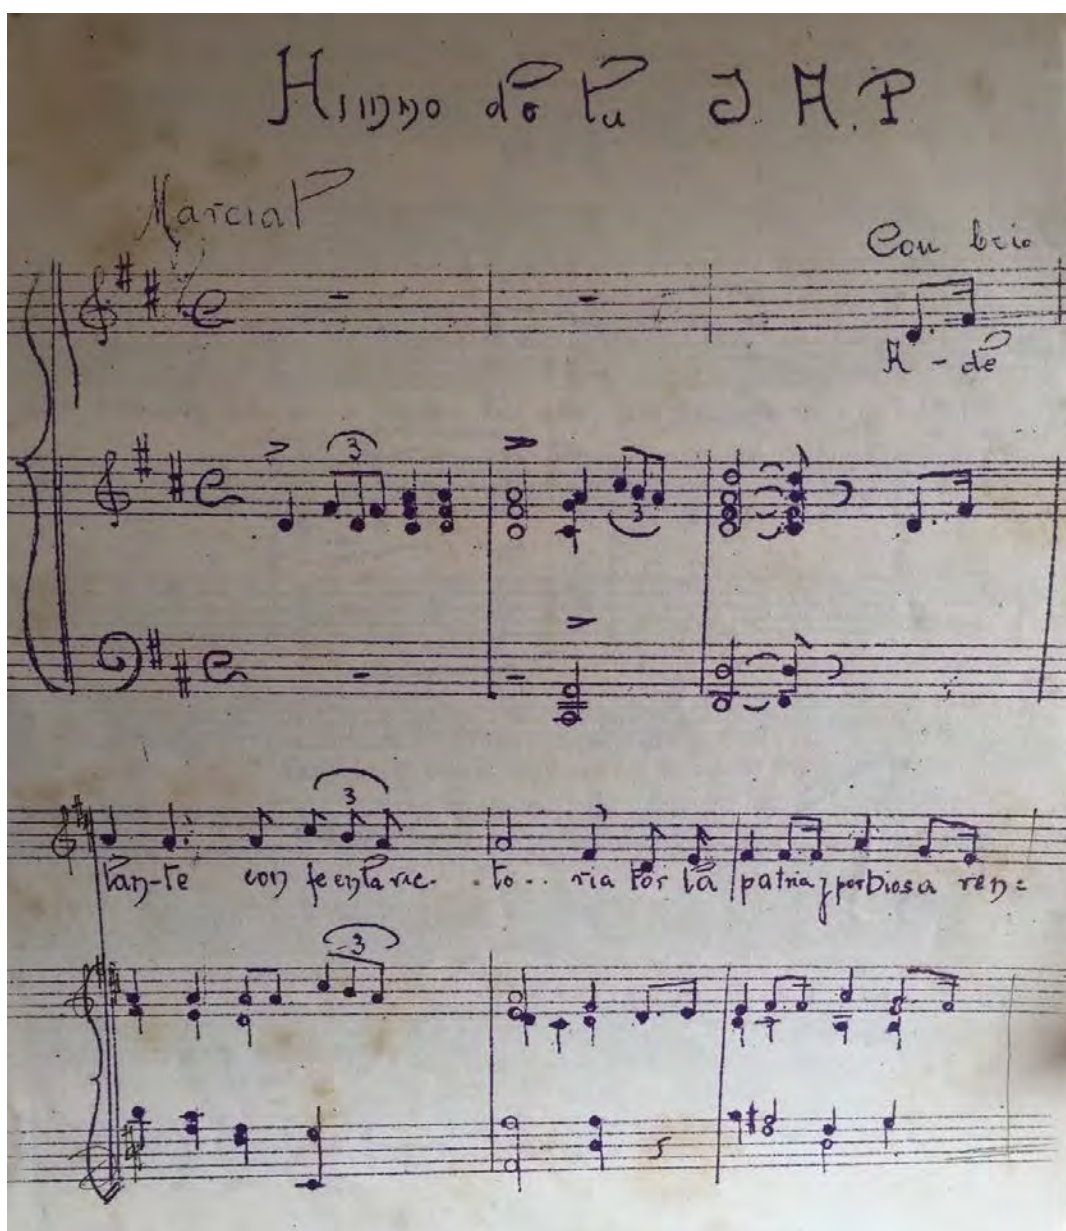 Himno de la J. A. P.
Marcial
Con brio
A - de
3
3
3
lan-te con fe en la vic- . to .. ria Por la patria y por Dios a ven=
3